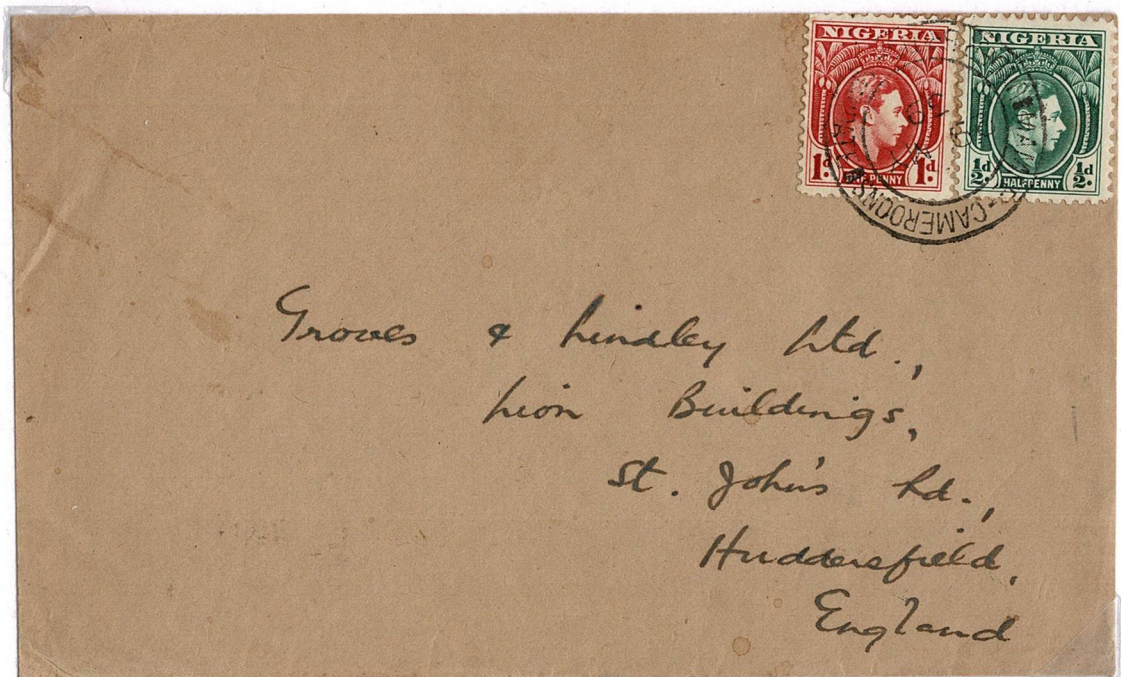 NIGERIA
1d 1d
PENNY
NIGERIA
½d ½d
HALFPENNY
CAMEROONS
Groves & Lindley Ltd.,
Lion Buildings,
St. John's Rd.,
Huddersfield,
England